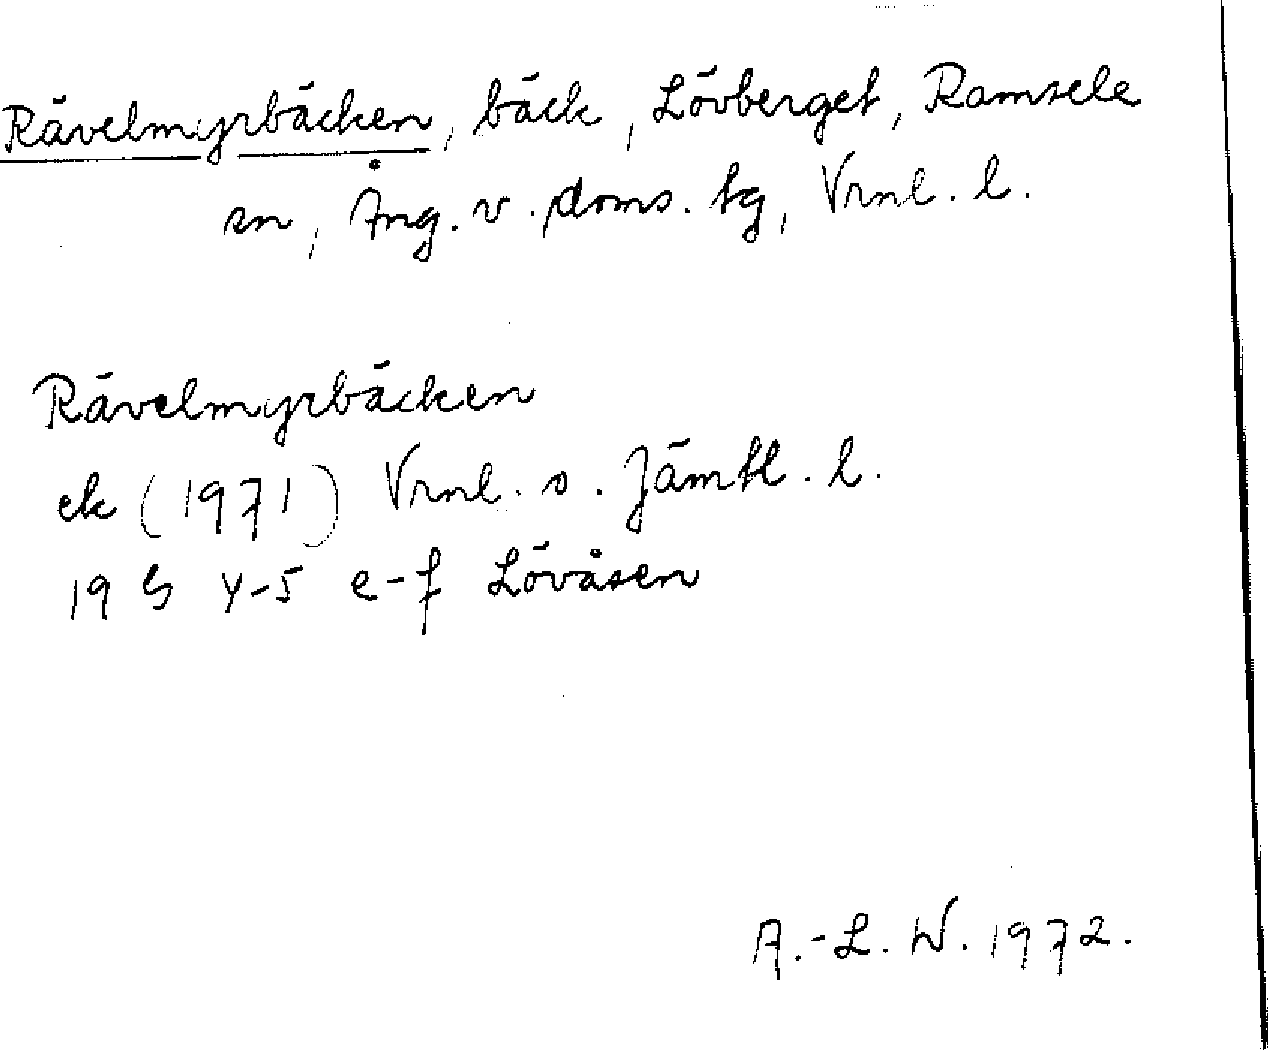 Rävelmyrbäcken, bäck, Lövberget, Ramsele
sn, Ång. v. doms. tg, Vrnl. l.
Rävelmyrbäcken
ek (1971) Vrnl. o. Jämtl. l.
19 G 4-5 e-f Lövåsen
A.-L. W. 1972.